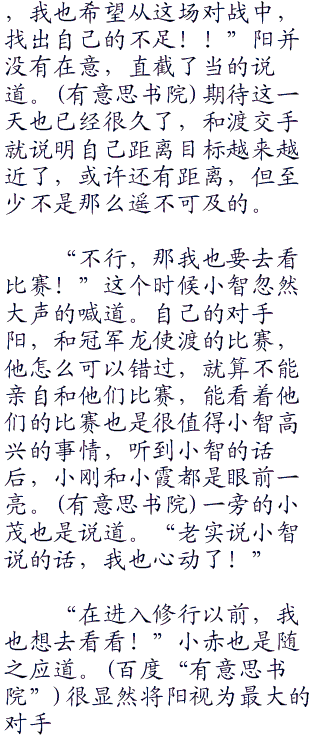 ，我也希望从这场对战中，
找出自己的不足！！”阳并
没有在意，直截了当的说
道。(有意思书院)期待这一
天也已经很久了，和渡交手
就说明自己距离目标越来越
近了，或许还有距离，但至
少不是那么遥不可及的。
“不行，那我也要去看
比赛！”这个时候小智忽然
大声的喊道。自己的对手
阳，和冠军龙使渡的比赛，
他怎么可以错过，就算不能
亲自和他们比赛，能看着他
们的比赛也是很值得小智高
兴的事情，听到小智的话
后，小刚和小霞都是眼前一
亮。(有意思书院)一旁的小
茂也是说道。“老实说小智
说的话，我也心动了！”
“在进入修行以前，我
也想去看看！”小赤也是随
之应道。(百度“有意思书
院”)很显然将阳视为最大的
对手